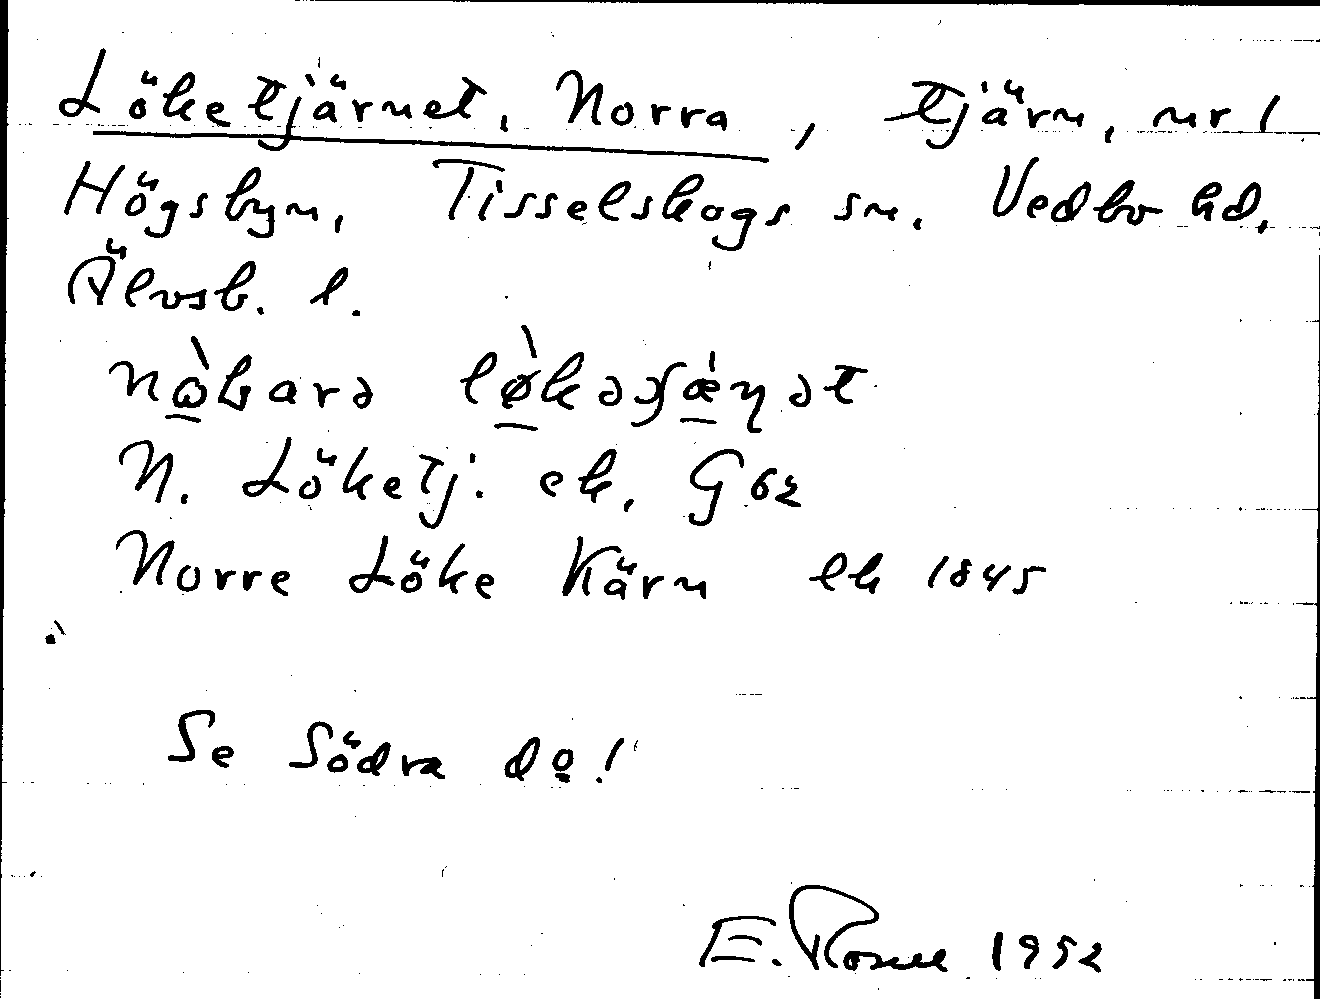 Löketjärnet, Norra, tjärn, nr 1
Högsbyn, Tisselskogs sn. Vedbo hd.
Älvsb. l.
N. Löketj. ek. G 62
Norre Löke Kärn ek 1845
Se Södra do!
E. 1952